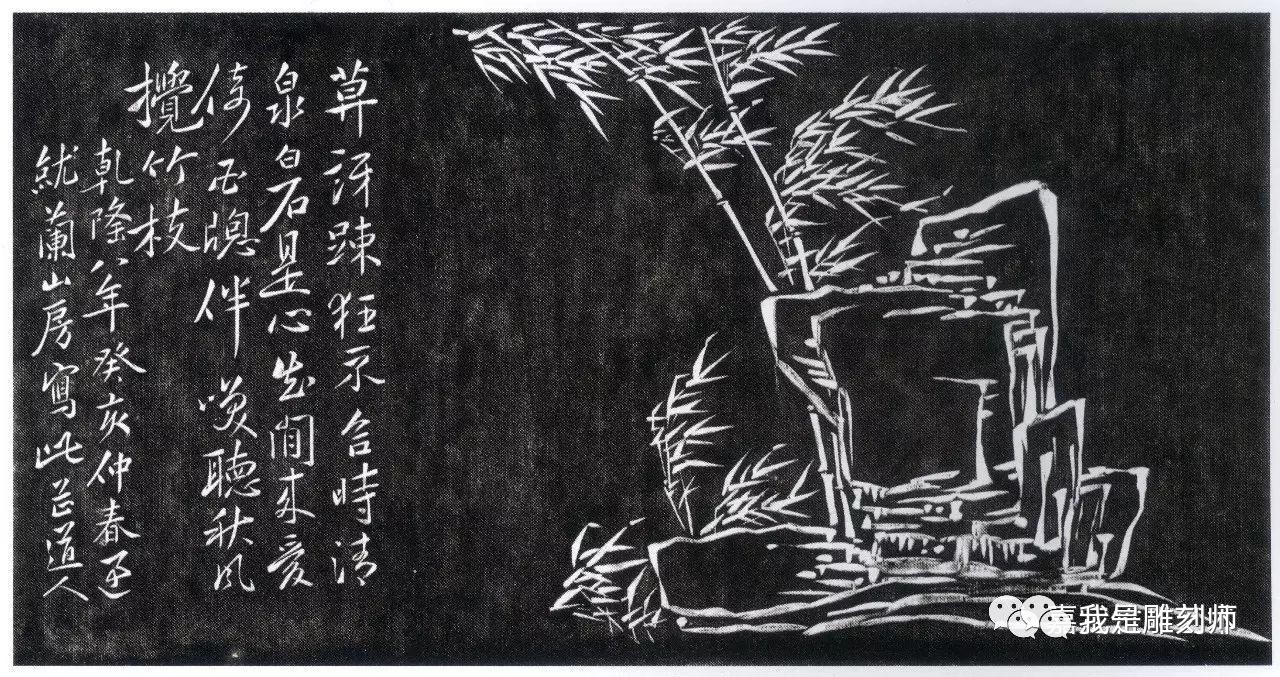 莫訝踈狂不合時清
泉白石是心知閒來愛
倚西牕伴咲聽秋風
攪竹枝
乾隆八年癸亥仲春
蘭山房寫此道人
嘉我是雕刻师